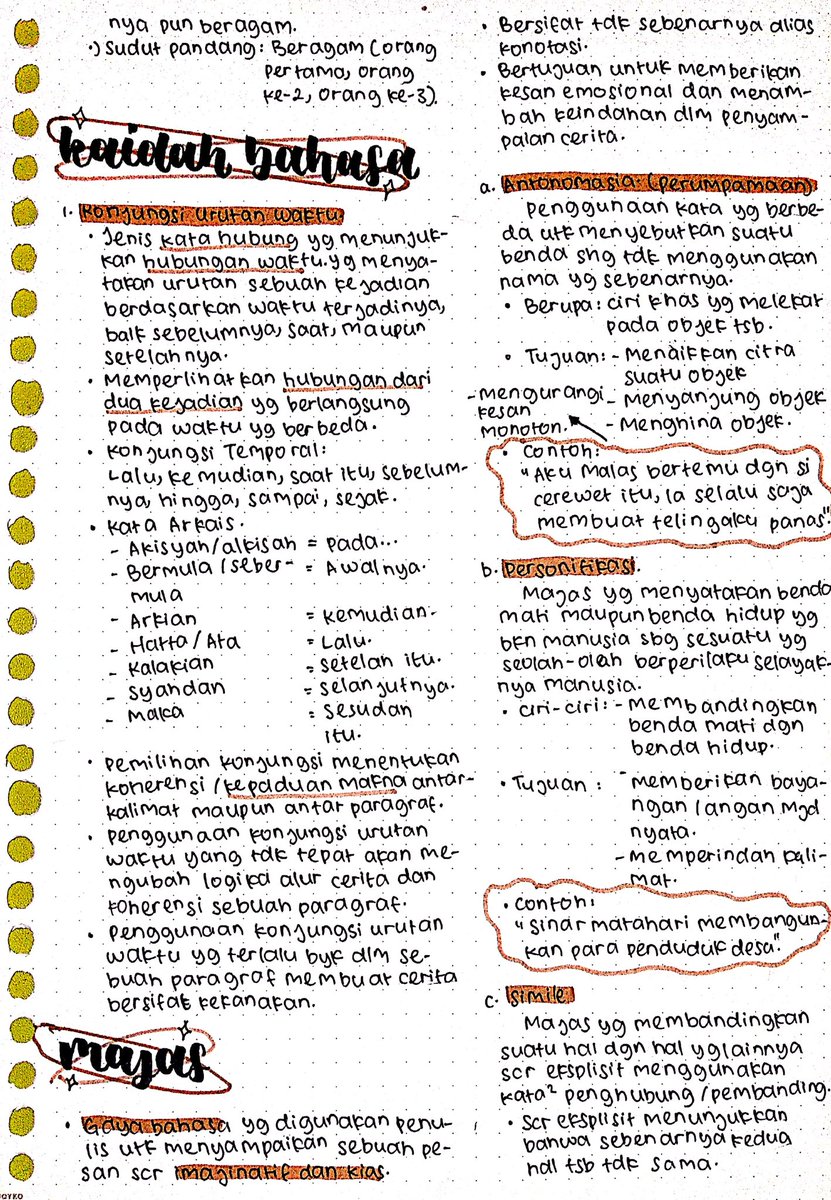 nya pun beragam.
•) Sudut pandang: Beragam (orang
pertama, orang
ke-2, orang ke-3).
kaidah bahasa
1. Konjungsi urutan waktu
• Jenis kata hubung yg menunjuk-
kan hubungan waktu. yg menya-
takan urutan sebuah kejadian
berdasarkan waktu terjadinya,
baik sebelumnya, saat, maupun
setelahnya.
• Memperlihatkan hubungan dari
dua kejadian yg berlangsung
pada waktu yg berbeda.
• Konjungsi Temporal:
Lalu, kemudian, saat itu, sebelum-
nya, hingga, sampai, sejak.
• Kata Arkais.
- Akisyah/alkisah = pada...
- Bermula / seber- = Awalnya.
mula
- Arkian = kemudian.
- Hatta / Ata = Lalu.
- Kalakian = setelah itu.
- Syahdan = selanjutnya.
- Maka = sesudah
itu.
• Pemilihan konjungsi menentukan
koherensi / kepaduan makna antar-
kalimat maupun antar paragraf.
• Penggunaan konjungsi urutan
waktu yang tdk tepat akan me-
ngubah logika alur cerita dan
koherensi sebuah paragraf.
• Penggunaan konjungsi urutan
waktu yg terlalu byk dlm se-
buah paragraf membuat cerita
bersifat kekanakan.
majas
• Gaya bahasa yg digunakan penu-
lis utk menyampaikan sebuah pe-
san scr imajinatif dan kias.
• Bersifat tdk sebenarnya alias
konotasi.
• Bertujuan untuk memberikan
kesan emosional dan menam-
bah keindahan dlm penyam-
palan cerita.
a. Antonomasia (perumpamaan)
Penggunaan kata yg berbe-
da utk menyebutkan suatu
benda shg tdk menggunakan
nama yg sebenarnya.
• Berupa: ciri khas yg melekat
pada objek tsb.
• Tujuan: - Menaikkan citra
suatu objek
- Menyanjung objek
- Menghina objek.
- mengurangi
kesan
monoton.
• Contoh:
"Aku malas bertemu dgn si
cerewet itu, Ia selalu saja
membuat telingaku panas."
b. Personifikasi
Majas yg menyatakan benda
mati maupun benda hidup yg
bkn manusia sbg sesuatu yg
seolah-olah berperilaku selayak-
nya manusia.
• ciri-ciri: - membandingkan
benda mati dgn
benda hidup.
• Tujuan: - memberikan baya-
ngan / angan mjd
nyata.
- memperindah kali-
mat.
• Contoh:
"Sinar matahari membangun-
kan para penduduk desa."
c. Simile
Majas yg membandingkan
suatu hal dgn hal yg lainnya
scr eksplisit menggunakan
kata² penghubung / pembanding.
• Scr eksplisit menunjukkan
bahwa sebenarnya kedua
hal tsb tdk sama.